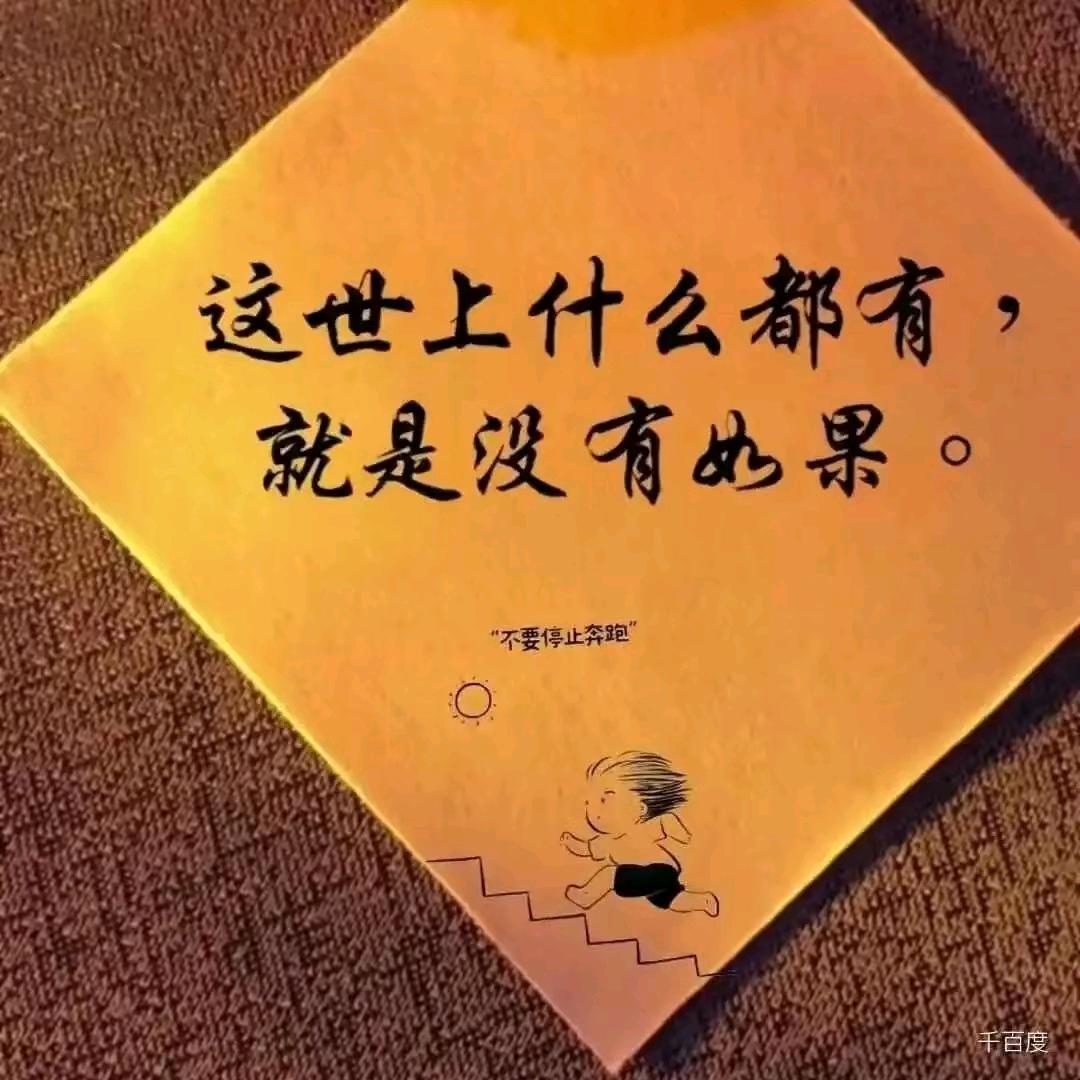 这世上什么都有，
就是没有如果。
“不要停止奔跑”
千百度